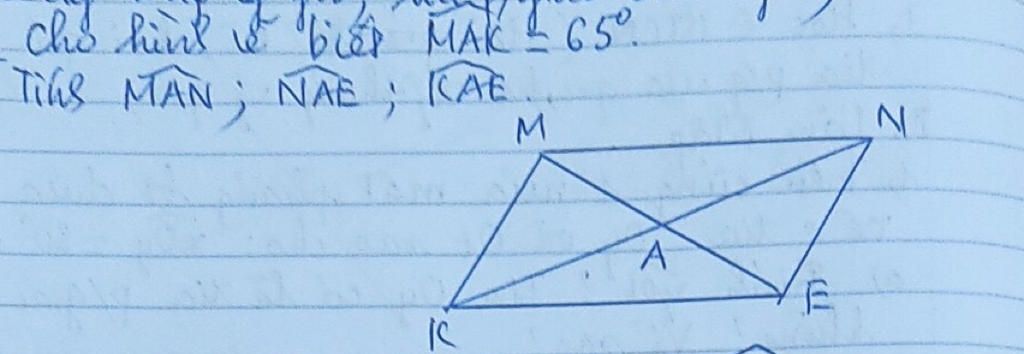 cho hình vẽ biết MAK = 65°.
Tính MAN ; NAE ; KAE.
M
N
A
K
E